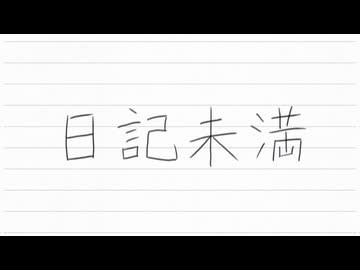 日記未満